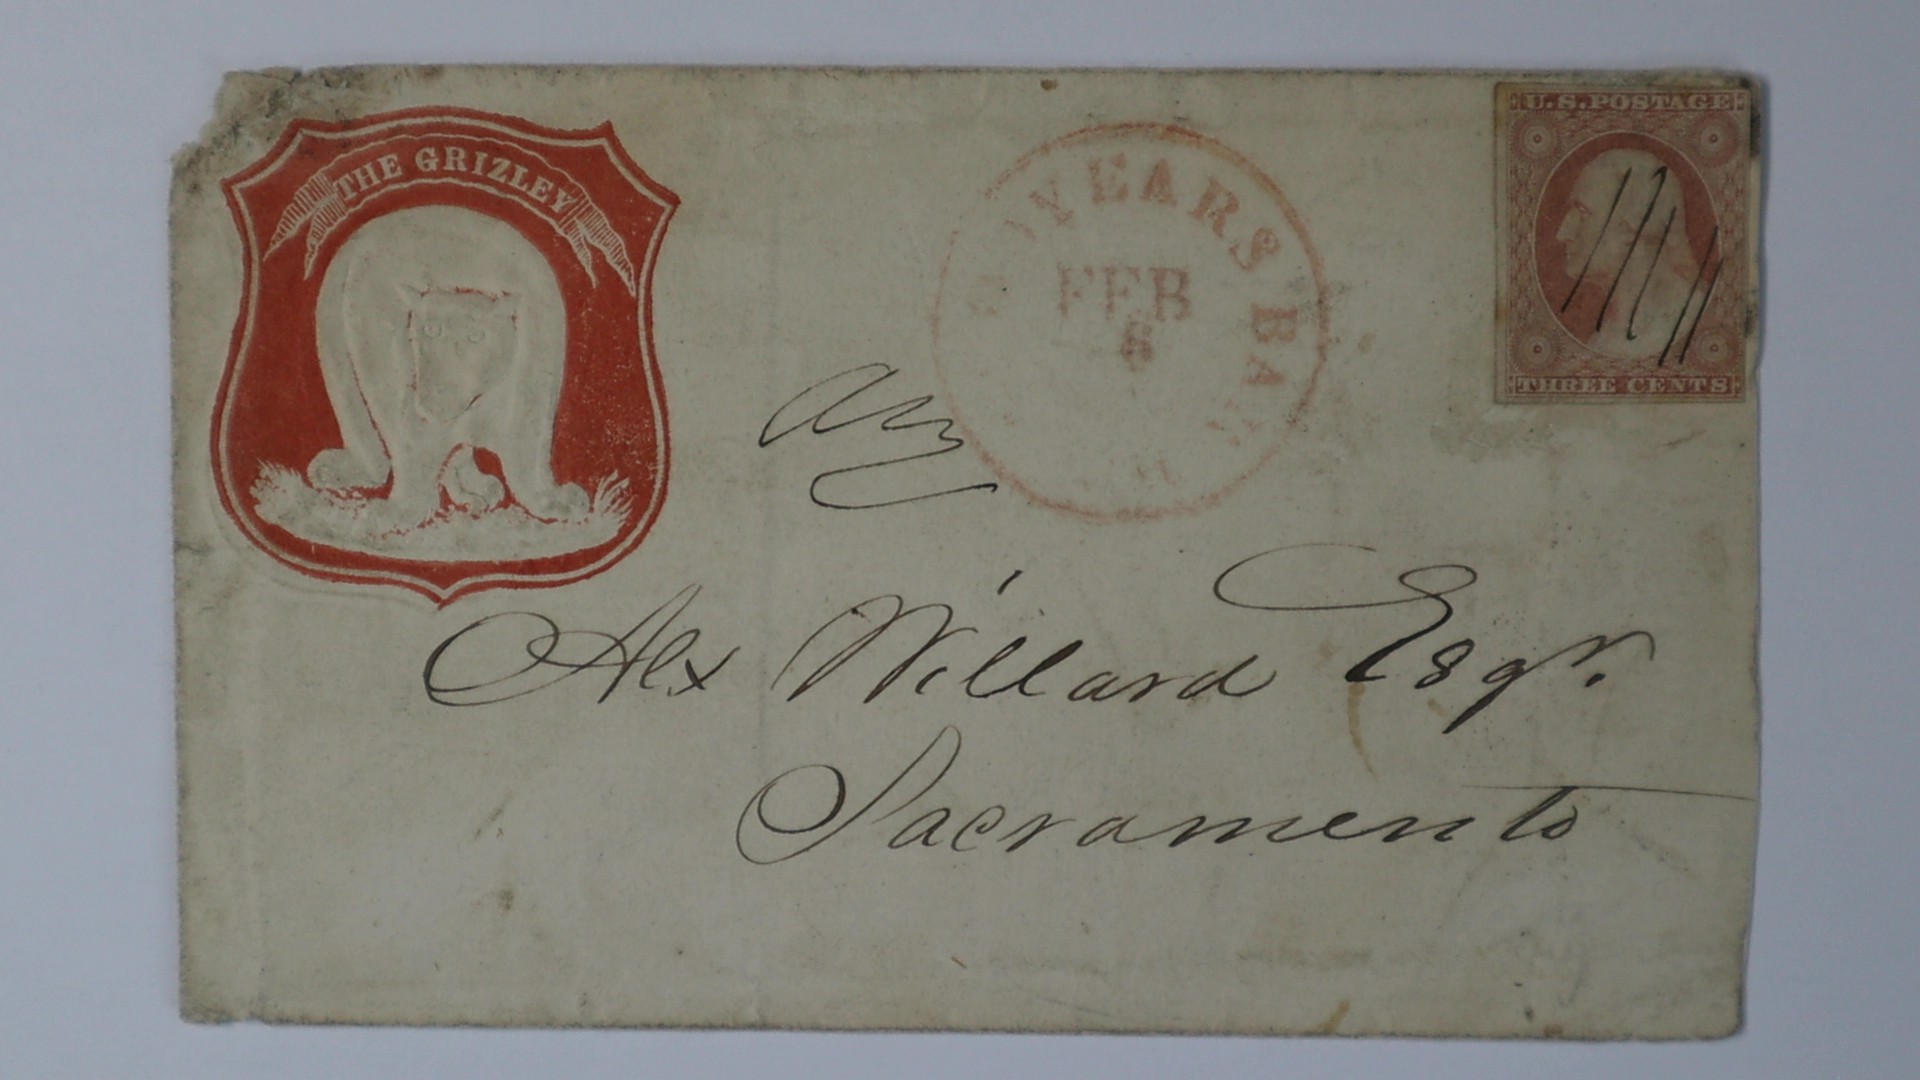 THE GRIZLEY
YEARS BA
FEB
6
U.S. POSTAGE
THREE CENTS
Alx Willard Esqr.
Sacramento